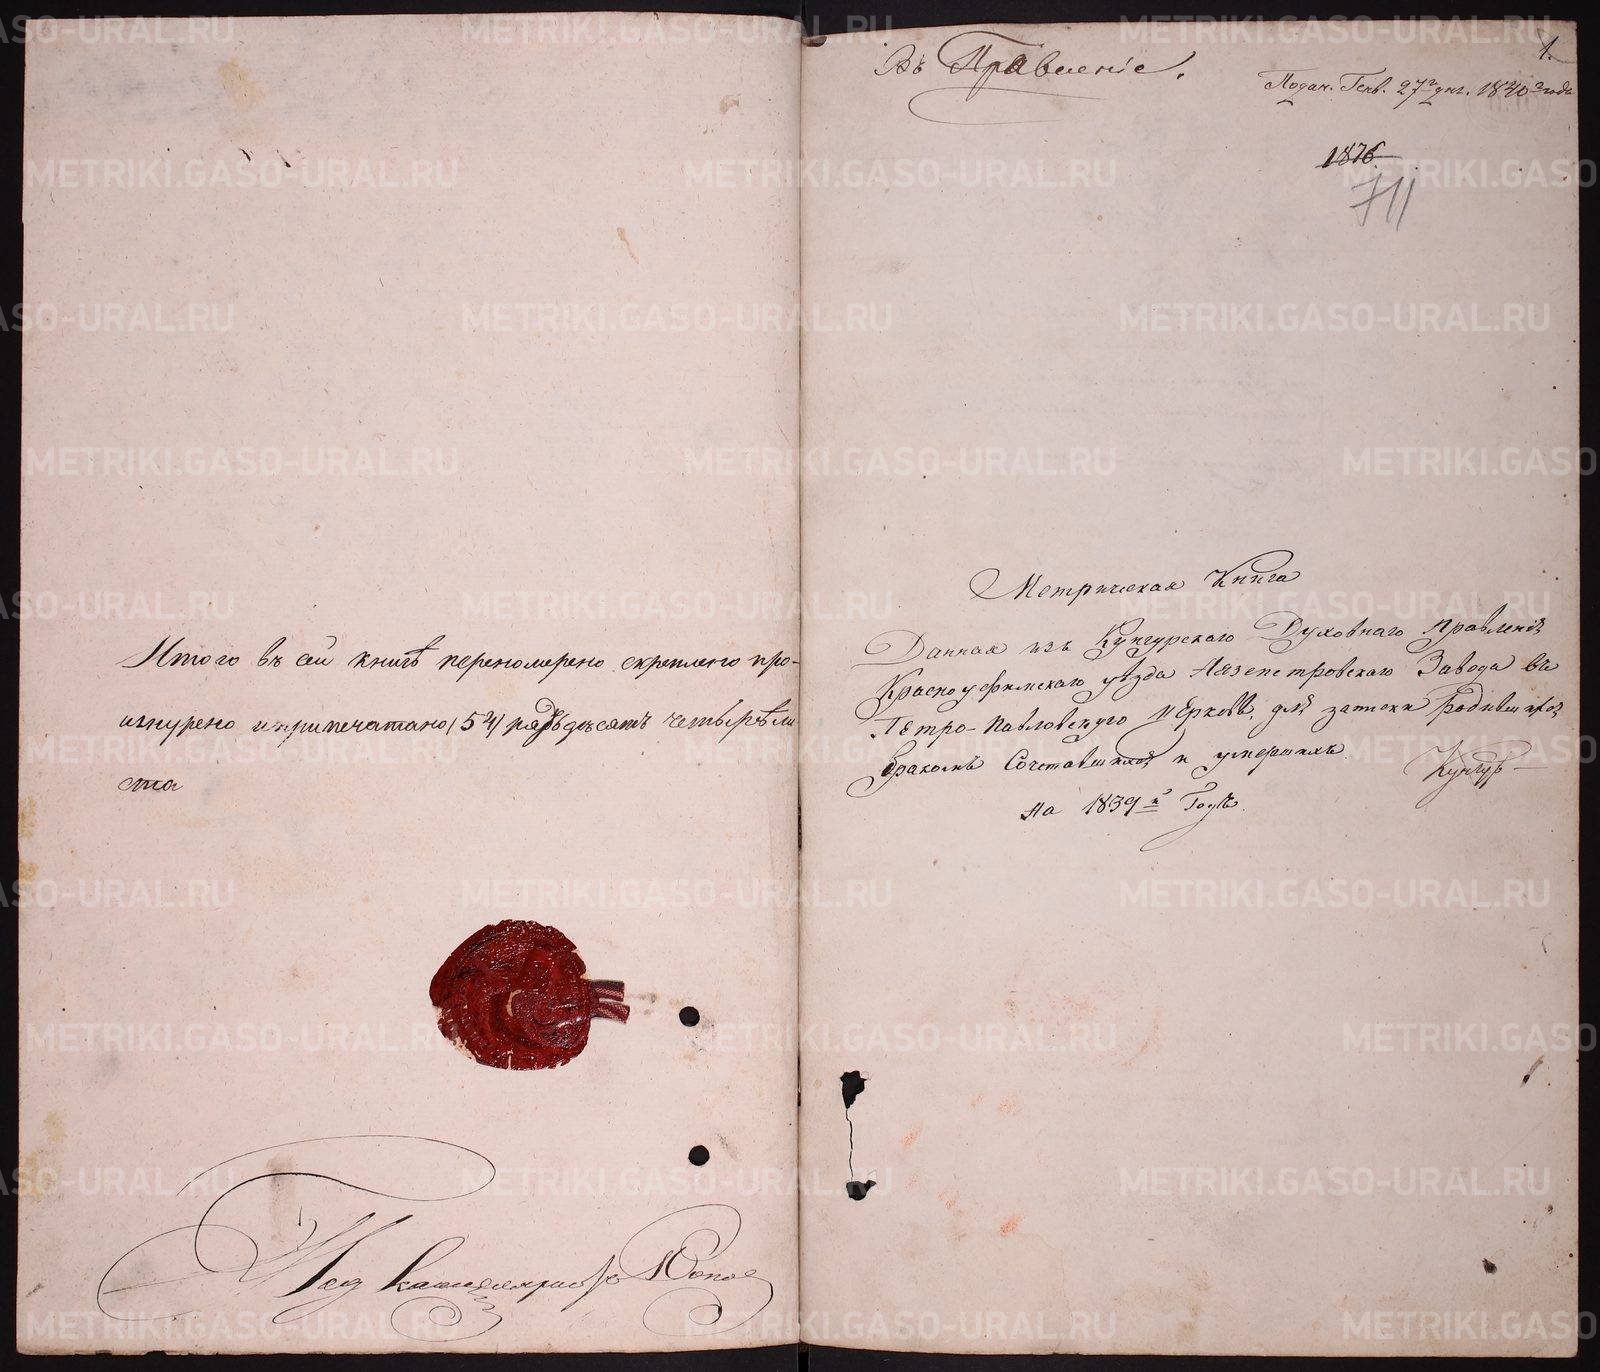 Итого въ сей книгѣ переномерено скреплено про-
шнурено и припечатано (54) пядьдѣсятъ четырѣ ли
ста
Под Канцеляристъ Попов
1.
Въ Правленіе.
Подан. Генв. 27го дня. 1840го года
1876
711
Метрическая Книга
Данная изъ Кунгурскаго Духовнаго Правленія
Красноуфимскаго уѣзда Нязепетровскаго Завода въ
Петро-Павловскую церковь, для записки Родившихся
бракомъ Сочетавшихся и умершихъ
Кунгуръ
На 1839й Годъ.
METRIKI.GASO-URAL.RU